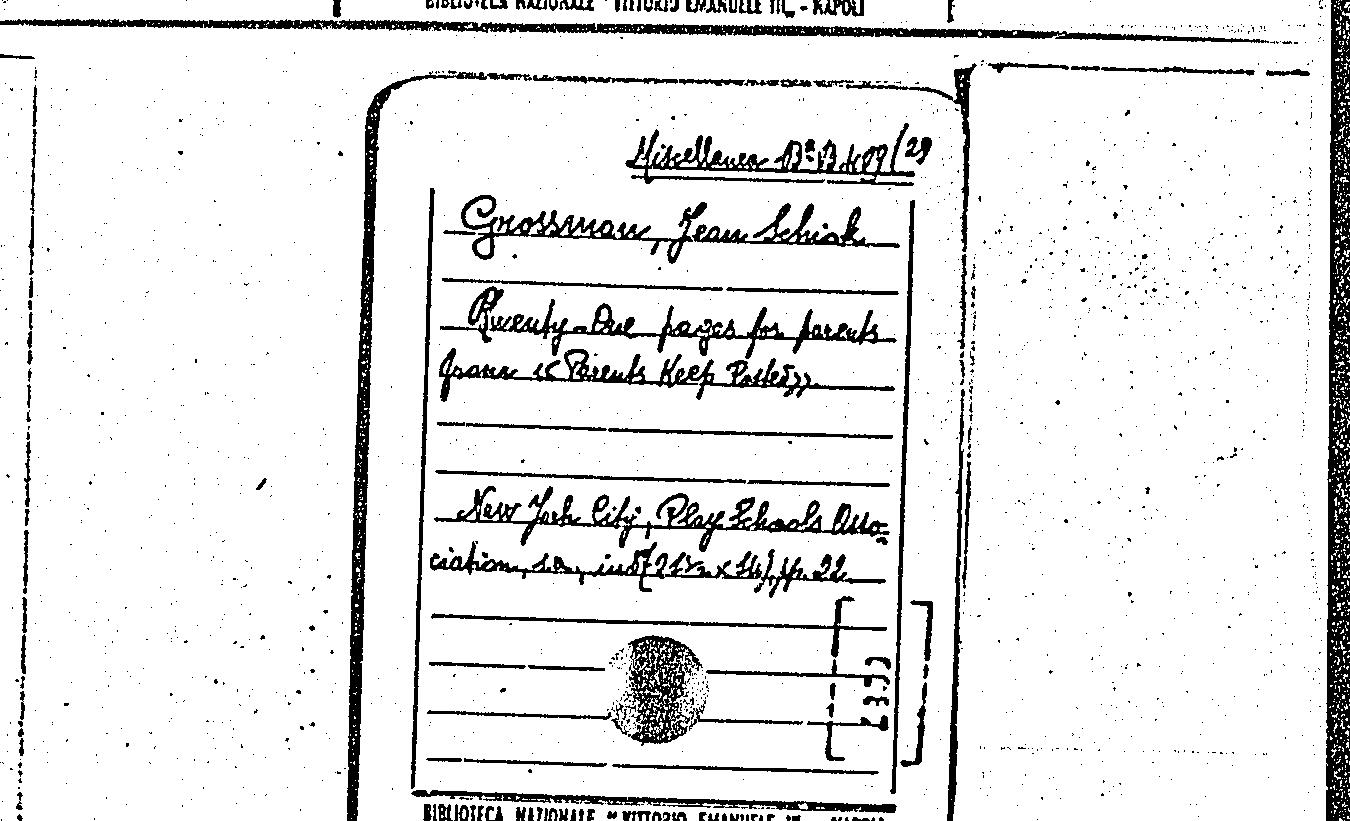 BIBLIOTECA NAZIONALE "VITTORIO EMANUELE III" - NAPOLI
Miscellanea Bª B.
Grossman, Jean Schick
Twenty-One pages for parents
from «Parents Keep Posted»
New York City, Play Schools Asso-
ciation, s.a., in 8 (21½ x 14), p. 22
BIBLIOTECA NAZIONALE "VITTORIO EMANUELE III" - NAPOLI